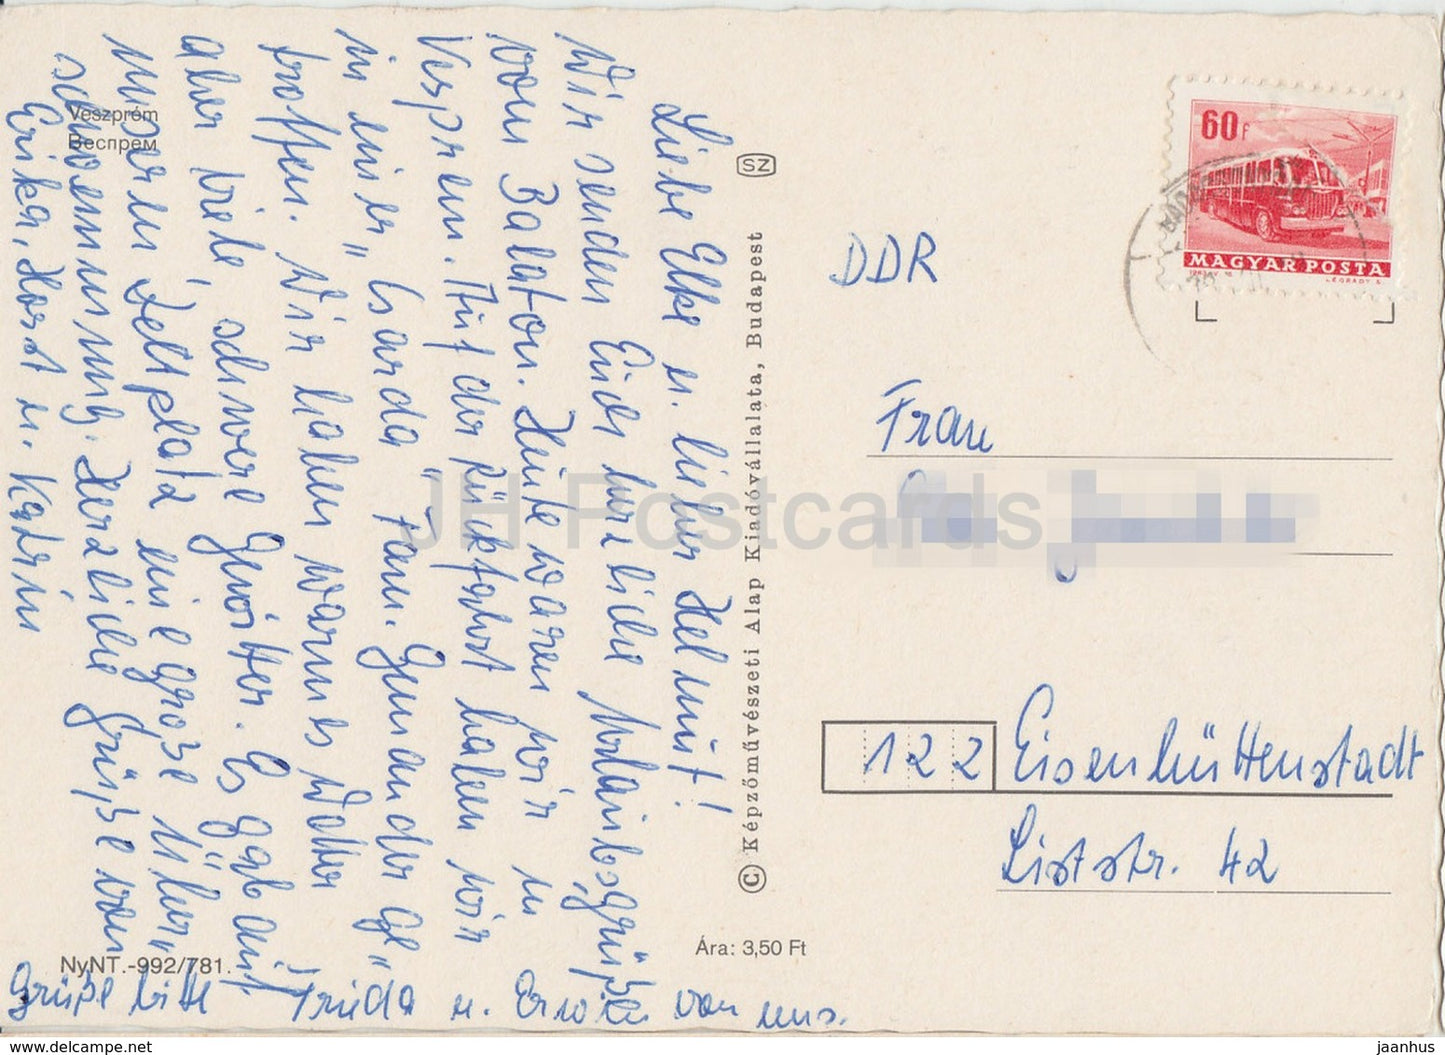 Liebe Elke u. lieber Helmut!
Wir senden Euch herzliche Urlaubsgrüße
vom Balaton. Heute waren wir in
Vesprem. Auf der Rückfahrt haben wir
in einer "Csarda" Fam. ge-
troffen. Wir haben warmes Wetter
aber viele, schwere Gewitter. Es gab auf
unserem Zeltplatz eine große Über-
schwemmung. Herzliche Grüße von
Erika, Horst u. Katrin
Grüße bitte Truda u. Erwin von uns.
Veszprém
Веспрем
NyNT.-992/781.
Ára: 3,50 Ft
SZ
© Képzőművészeti Alap Kiadóvállalata, Budapest
60 f
MAGYAR POSTA
LÉGRÁDY S.
DDR
Frau
122 Eisenhüttenstadt
Liststr. 42
JH Postcards
www.delcampe.net
jaanhus